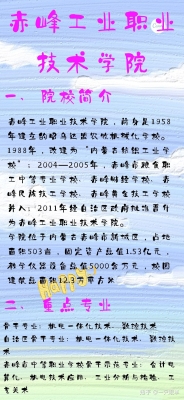 赤峰工业职业
技术学院
一、院校简介
赤峰工业职业技术学院，前身是1958
年建立的昭乌达盟农牧机械化学校。
1988年，改建为“内蒙古纺织工业学
校”；2004—2005年，赤峰市粮食职
工中等专业学校、赤峰财经学校、赤
峰民族技工学校、赤峰黄金技工学校
并入；2011年经自治区政府批准晋升
为赤峰工业职业技术学院。
学院位于内蒙古赤峰市新城区，占地
面积503亩，固定资产值1.53亿元，
教学仪器设备总值5000余万元，校园
建筑总面积12.3万平方米
Happy
二、重点专业
骨干专业：机电一体化技术、数控技术
自治区骨干专业：机电一体化技术、数控技
术
赤峰市中等职业学校骨干示范专业：会计电
算化、机电技术应用、工业分析与检验、工
艺美术